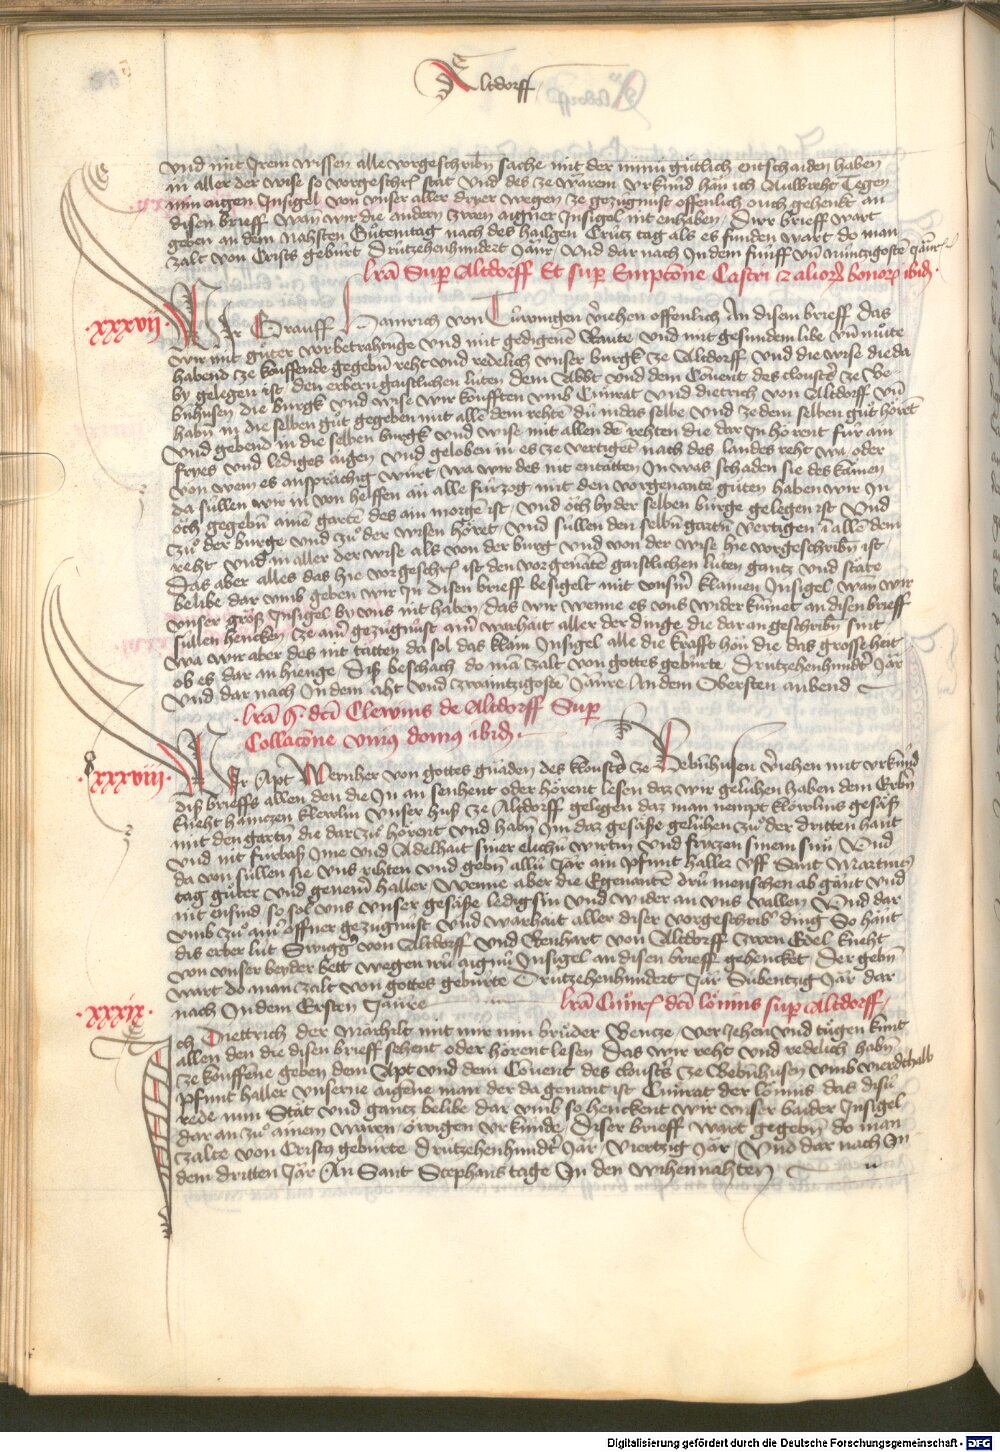 Altdorff
vnd mit Irem wissen alle vorgeschribn sache mit der minn gütlich entschaiden haben
in aller der wise so vorgeschr stat vnd des ze warem vrkünd han ich Aulbreht Tegen
min aigen Insigel von vnser aller dryer wegen ze gezügnust offenlich ouch gehenkt an
disen brieff wan wir die andern zwen aigner Insigel nit enhaben Dirr brieff wart
geben an dem Nahsten Gutemtag nach des hailgen Crütz tag als es funden wart do man
zalt von Crists geburt Drützehenhundert Jaur Vnd dar nach In dem fünff vn nüntzigostē Jaure
lrā Sup Altdorff Et sup Empcōne Castri et alior bonor ibid
.xxxvij.
Wir Grauff Hainrich von Tüwingen veriehen offenlich An disem brieff das
wir mit guter vorbetrahtunge vnd mit gedigenē Raute vnd mit gesundem libe vn mute
habend ze kouffende gegebn reht vnd redelich vnser burgk ze Altdorff vnd die wise die da
by gelegen ist den erbern gaistlichen lüten dem Abbt vnd dem Cōuent des closters ze Be-
bnhusen die burgk vnd wise wir koufften vmb Cunrat vnd dietrich von Altdorff vn
habn in die selben gut gegeben mit allē dem rehtē dü in das selbe vnd ze dem selben gut hörēt
vnd gebend in die selben burgk vnd wise mit allen de rehten die dar In hörent für ain
fryes vnd lediges aigen vnd geloben in es ze vertigēt nach des landes reht wa oder
von wem es ansprachig wurt, wa wir des nit entätten In was schaden sie des kämen
da süllen wir in von helffen an alle fürzog mit den vorgenante güten haben wir In
öch gegebn aine gartē des ain morge ist vnd öch by der selben burge gelegen ist Vnd
zu der burge vnd zu der wisen höret, vnd süllen den selbn gartn vertigen in allē dem
reht vnd in aller der wise als von der burg vnd von der wise hie vorgeschribn ist
Das aber alles das hie vorgeschr ist den vorgenātē gaistlichen lüten gantz vnd stäte
belibe dar vmb geben wir In disen brieff besigelt mit vnsm klainen Insigel, wan wir
vnser gröss Insigel by vns nit haben, das wir wenne es vns wider kümet an disen brieff
süllen hencken ze aim gezügnust aim warhait aller der dinge die dar an geschribn sint
wa wir aber des nit tätten da sol das klain Insigel alle die krafft hön die das grosse heit
ob es dar an hienge Diss beschach do mā zalt von gottes geburte Drützehenhundt Jar
Vnd dar nach In dem äht vnd zwaintzigostē Jaure An dem Obersten aubend
lrā H. dci Clewins de Altdorff Sup
Collacōne vnius domus ibid.
.xxxviij.
Wir Apt Wernher von gottes gnaden des klousters ze Bebnhusen veriehen mit vrkünd
diss brieffs allen den die In an sehent oder hörent lesen daz wir gelühen haben dem Erbn
kneht haintzen klewlin vnser huss ze Altdorff gelegen daz man nempt klöwlins gesäss
mit den gartn die dar zu hörent vnd habn Im daz gesässe gelühen zu der dritten hant
vnd nit fürbass Ime vnd Adelhait siner elichn wirtin vnd fryczen sinem sun Vnd
da von süllen sie vns rihten vnd gebn allü Jar ain pfunt haller vff Sant Martins
tag guter vnd genemr haller, Wenne aber die Egenantē drü menschen ab gant vnd
nit ensind so sol vns vnser gesässe ledig sin vnd wider an vns vallen Vnd dar
vmb zu aim offner gezügnust vnd warhait aller diser vorgeschrib ding So hant
dis erber lüt Swiggr von Altdorff vnd Renhart von Altdorff zwen Edel kneht
von vnser beyder bett wegen irü aignü Insigel an disen brieff gehencket Der gebn
wart do man zalt von gottes geburte Drützehenhundert Jar Sübentzig Jar dar
nach In dem Ersten Jaure
lrā Cunr dci lönnis sup Altdorff
.xxxix.
Ich Diettrich der Märhilt mit mir min brüder Bentze, veriehen vnd tügen kunt
allen den die disen brieff sehent oder hörent lesen Das wir reht vnd redelich habn
ze kouffene geben dem Apt vnd dem Couent des closters ze Bebnhusen vmb vierdthalb
pfunt haller vnserne aigene man der da genant ist Cunrat der lönnis das disü
rede nun Stät vnd gantz belibe dar vmb so henckent wir vnser baider Insigel
dar an zu ainem waren öwigen vrkünde, Diser brieff wart gegebn do man
zalte von Cristus geburte Drützehenhundt Jar, viertzig Jar, Vnd dar nach In
dem dritten Jar An Sant Stephans tage In den wihennahten
Digitalisierung gefördert durch die Deutsche Forschungsgemeinschaft - DFG